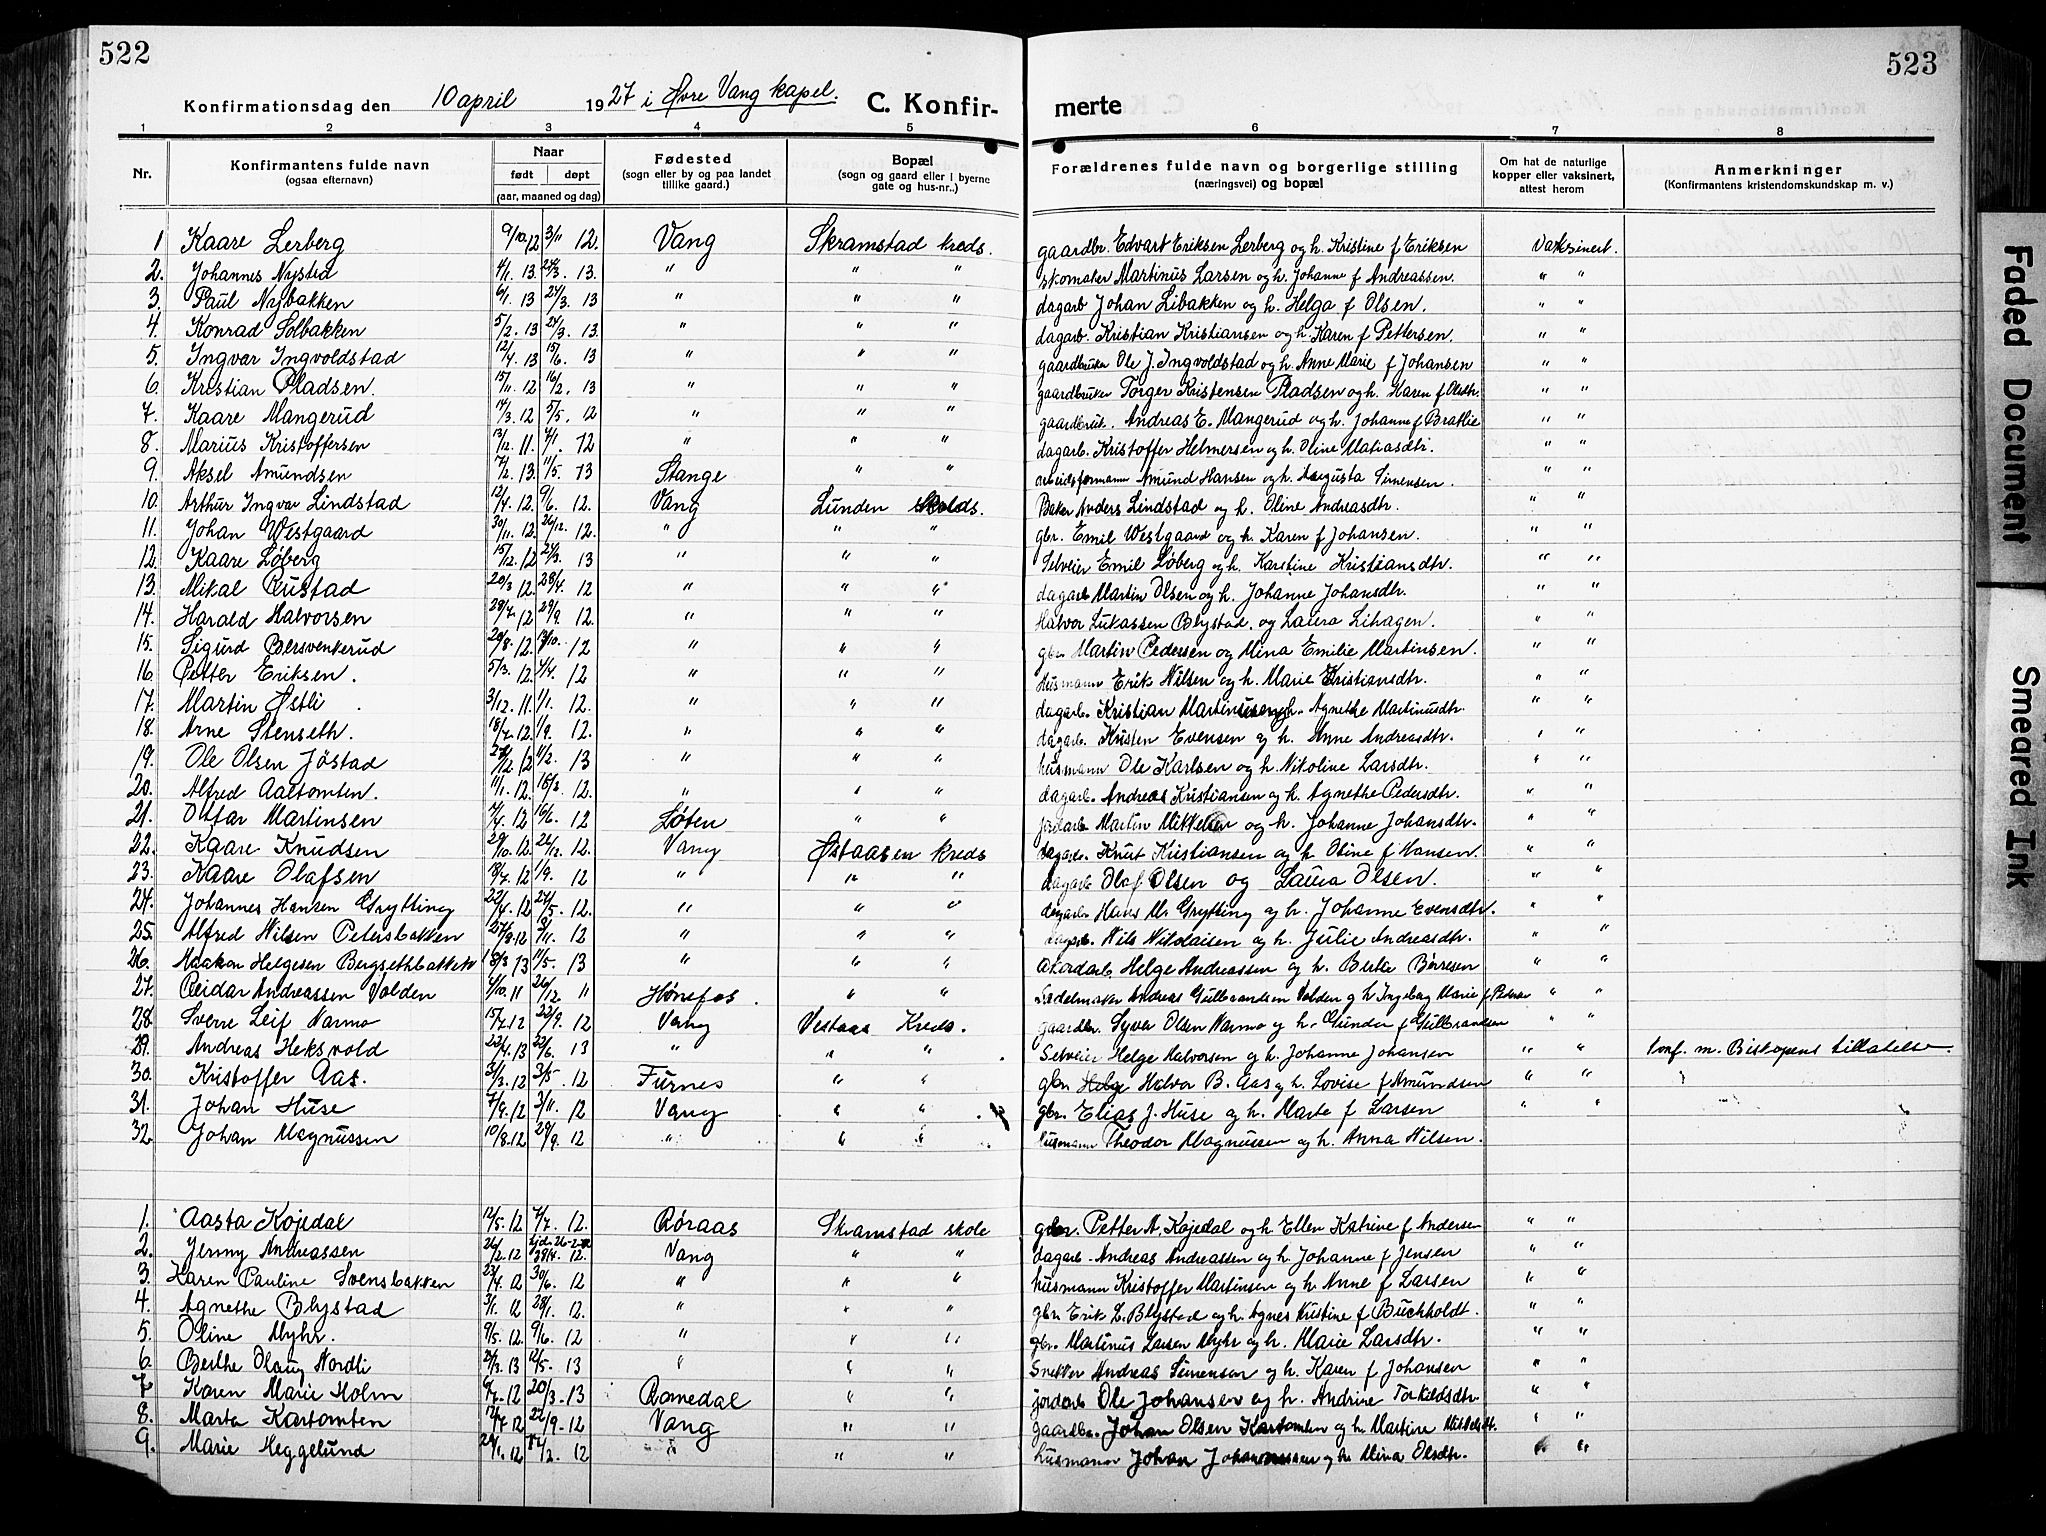 522
Konfirmationsdag den 10 april 1927 i Øvre Vang kapel. C. Konfir-
1 2 3 4 5
Nr. Konfirmantens fulde navn (ogsaa efternavn) Naar født døpt (aar, maaned og dag) Fødested (sogn eller by og paa landet tillike gaard.) Bopæl (sogn og gaard eller i byerne gate og hus-nr..)
523
merte
6 7 8
Forældrenes fulde navn og borgerlige stilling (næringsvei) og bopæl Om hat de naturlige kopper eller vaksinert, attest herom Anmerkninger (Konfirmantens kristendomskundskap m. v.)
1 Kaare Lerberg 9/10 12 3/11 12. Vang Skramstad kreds. gaardbr. Edvart Eriksen Lerberg og h. Kristine f Eriksen Vaksinert.
2. Johannes Nystad 4/1. 13. 24/3. 13. " " " skomaker Martinus Larsen og h. Johanne f Andreassen. " "
3. Paul Nybakken 6/1. 13 24/3. 13 " " " dagarb Johan Libakken og h. Helga f Olsen. " "
4. Konrad Solbakken 5/2. 13 24/3. 13. " " " dagarb. Kristian Kristiansen og h. Karen f Pettersen. " "
5. Ingvar Ingvoldstad 12/4. 13 15/6. 13 " " " gaardbruker Ole J. Ingvoldstad og h. Anne Marie f Johansen " "
6. Kristian Pladsen. 15/11. 12 16/2. 13 " " " gaardbruker Torger Kristensen Pladsen og h. Karen f Olsdtr. " "
7. Kaare Mangerud 14/3. 12 5/5. 12 " " " gaardbruk. Andreas E. Mangerud og h. Johanne f Bratlie " "
8. Marius Kristoffersen 13/12. 11. 7/1. 12 " " " dagarb. Kristoffer Helmersen og h. Oline Matiasdtr. " "
9. Aksel Amundsen 7/2. 13. 11/5. 13 Stange " " arbeidsformann Amund Hansen og h. Augusta Simensen. " "
10. Arthur Ingvar Lindstad 12/4. 12. 9/6. 12. Vang Lunden kreds. Baker Anders Lindstad og h. Oline Andreasdtr. " "
11. Johan Westgaard 30/11. 12. 26/12. 12. " " " gbr. Emil Westgaard og h. Karen f Johansen. " "
12. Kaare Løberg 15/12. 12 24/3. 13 " " " Selveier Emil Løberg og h. Karstine Kristiansdtr. " "
13. Mikal Rustad 20/3 12. 28/4. 12 " " " dagarb Martin Olsen og h. Johanne Johansdtr. " "
14. Harald Halvorsen 28/7. 12 29/9. 12. " " " Halvor Lukassen Blystad. og Laura Lihagen. " "
15. Sigurd Bersvenkerud 29/8. 12. 13/10. 12 " " " gbr. Martin Pedersen og Mina Emilie Martinsen. " "
16. Petter Eriksen. 5/3. 12. 4/4. 12 " " " Husmann Erik Nilsen og h. Marie Kristiansdtr. " "
17. Martin Østli 3/12. 11. 1/1. 12. " " " dagarb. Kristian Martinusen og h. Agnethe Martinusdtr. " "
18. Arne Stenseth. 18/7. 12. 1/9. 12. " " " dagarb. Kristen Evensen og h. Anne Andreasdtr. " "
19. Ole Olsen Jøstad 27/12. 12 11/2. 13 " " " husmann Ole Karlsen og h. Nikoline Larsdtr. " "
20. Alfred Aastomten. 11/1. 12. 18/2. 12. " " " dagarb. Andreas Kristiansen og h. Agnethe Pedersdtr. " "
21. Ottar Martinsen 14/4. 12 16/6. 12 Løten " " jordarb Martin Mikkelsen og h. Johanne Johansdtr. " "
22. Kaare Knudsen 29/10. 12. 26/12. 12. Vang Østaasen kreds dagarb. Knut Kristiansen og h. Oline f Hansen. " "
23. Kaare Olafsen 18/7. 12 1/9. 12 " " " dagarb Olaf Olsen og Laura Olsen. " "
24. Johannes Hansen Grytting 22/4. 12 27/5. 12. " " " dagarb Hans M. Grytting og h. Johanne Evensdtr. " "
25. Alfred Nilsen Petersbakken 27/8. 12 9/11. 12 " " " dagarb. Nils Nikolaisen og h. Julie Andreasdtr. " "
26. Haakon Helgesen Bergsethbakken 18/3 13 11/5. 13 " " " Akordarb. Helge Andreassen og h. Berte Børresen " "
27. Reidar Andreassen Volden 4/10. 11 26/12 11 Hønefos. " " Sadelmaker Andreas Gulbrandsen Volden og h Ingeborg Marie f Peders " "
28. Sverre Leif Narmo 15/7. 12 22/9. 12 Vang Vestaas Kreds. gaardbr. Syver Olsen Narmo og h. Gunda f Gulbrandsen " "
29. Andreas Heksvold 22/4. 13 22/6. 13 " " " Selveier Helge Halvorsen og h. Johanne Johansen " " konf. m. Biskopens tillatelse.
30. Kristoffer Aas. 31/3. 12 3/5. 12 Furnes " " gbr. Halvor B. Aas og h. Lovise f Amundsen " "
31. Johan Huse 7/9. 12 3/11. 12 Vang " " gbr. Elias J. Huse og h. Marte f Larsen " "
32. Johan Magnussen 10/8. 12 29/9. 12 " " " husmann Theodor Magnussen og h. Anna Nilsen.
1. Aasta Kojedal 12/5. 12 7/7. 12. Røraas Skramstad skole gbr. Petter A. Kojedal og h Ellen Katrine f Andersen " "
2. Jenny Andreassen 26/2. 12 28/4. 12. Vang " " dagarb. Andreas Andreassen og h. Johanne f Jensen " "
3. Karen Pauline Svensbakken 23/4. 12 30/6. 12 " " " husmann Kristoffer Martinsen og h. Anne f Larsen " "
4. Agnethe Blystad 3/1. 12 28/1. 12. " " " gbr. Erik L. Blystad og h. Agnes Kristine f Buchholdt. " "
5. Oline Myhr. 9/5. 12. 9/6. 12 " " " gbr. Martinus Larsen Myhr og h. Marie Larsdtr. " "
6. Berthe Olaug Nordli 24/3. 13 12/5. 13 " " " Snekker Andreas Simensen og h. Karen f Johansen " "
7. Karen Marie Holm 12 20/3. 13 Romedal " " jordarb Ole Johansen og h. Andrine Torkildsdtr. " "
8. Marta Kartomten 12/7 12 22/9. 12 Vang " " gaardbr. Johan Olsen Kartomten og h. Martine Mikkelsdt. " "
9. Marie Heggelund 24/1. 12 /2. 12 " " " husmann Johan Johannessen og h. Mina Olsdtr. " "
Faded Document
Smeared Ink